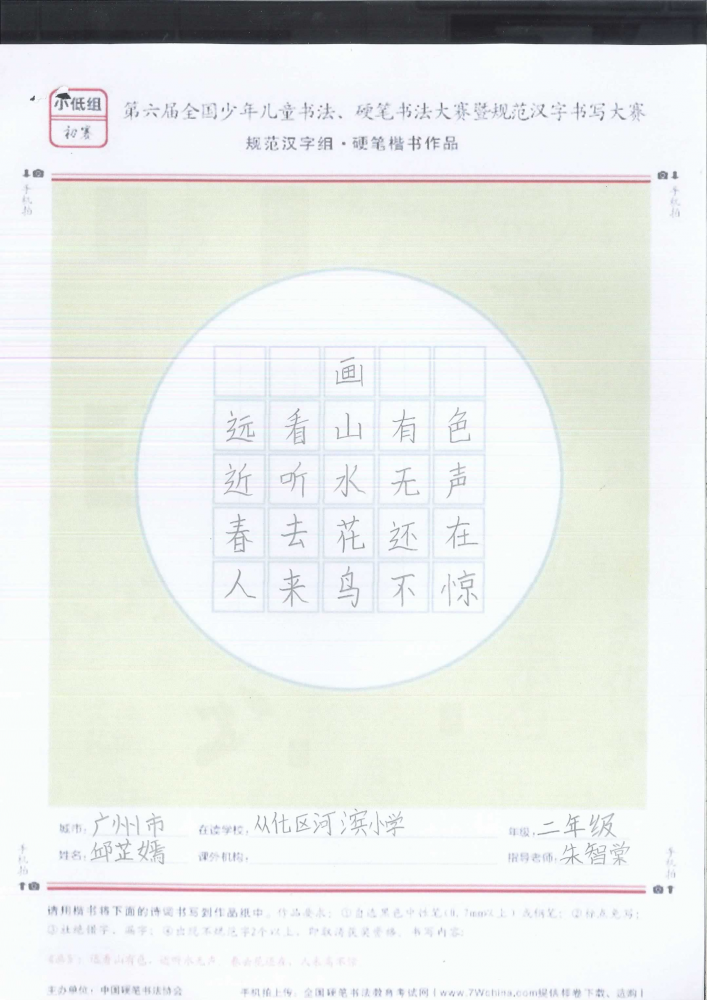 小低组
初赛
第六届全国少年儿童书法、硬笔书法大赛暨规范汉字书写大赛
规范汉字组·硬笔楷书作品
手机拍
手机拍
画
远看山有色
近听水无声
春去花还在
人来鸟不惊
城市：广州市 在读学校：从化区河滨小学 年级：二年级
姓名：邱芷嫣 课外机构： 指导老师：朱智棠
手机拍
手机拍
请用楷书将下面的诗词书写到作品纸中。作品要求：①自选黑色中性笔(0.7mm以上)或钢笔；②标点免写；
③杜绝错字、漏字；④出现不规范字2个以上，即取消获奖资格。书写内容：
《画》：远看山有色，近听水无声。春去花还在，人来鸟不惊。
主办单位：中国硬笔书法协会 手机拍上传：全国硬笔书法教育考试网（www.7Wchina.com提供样卷下载、选购）